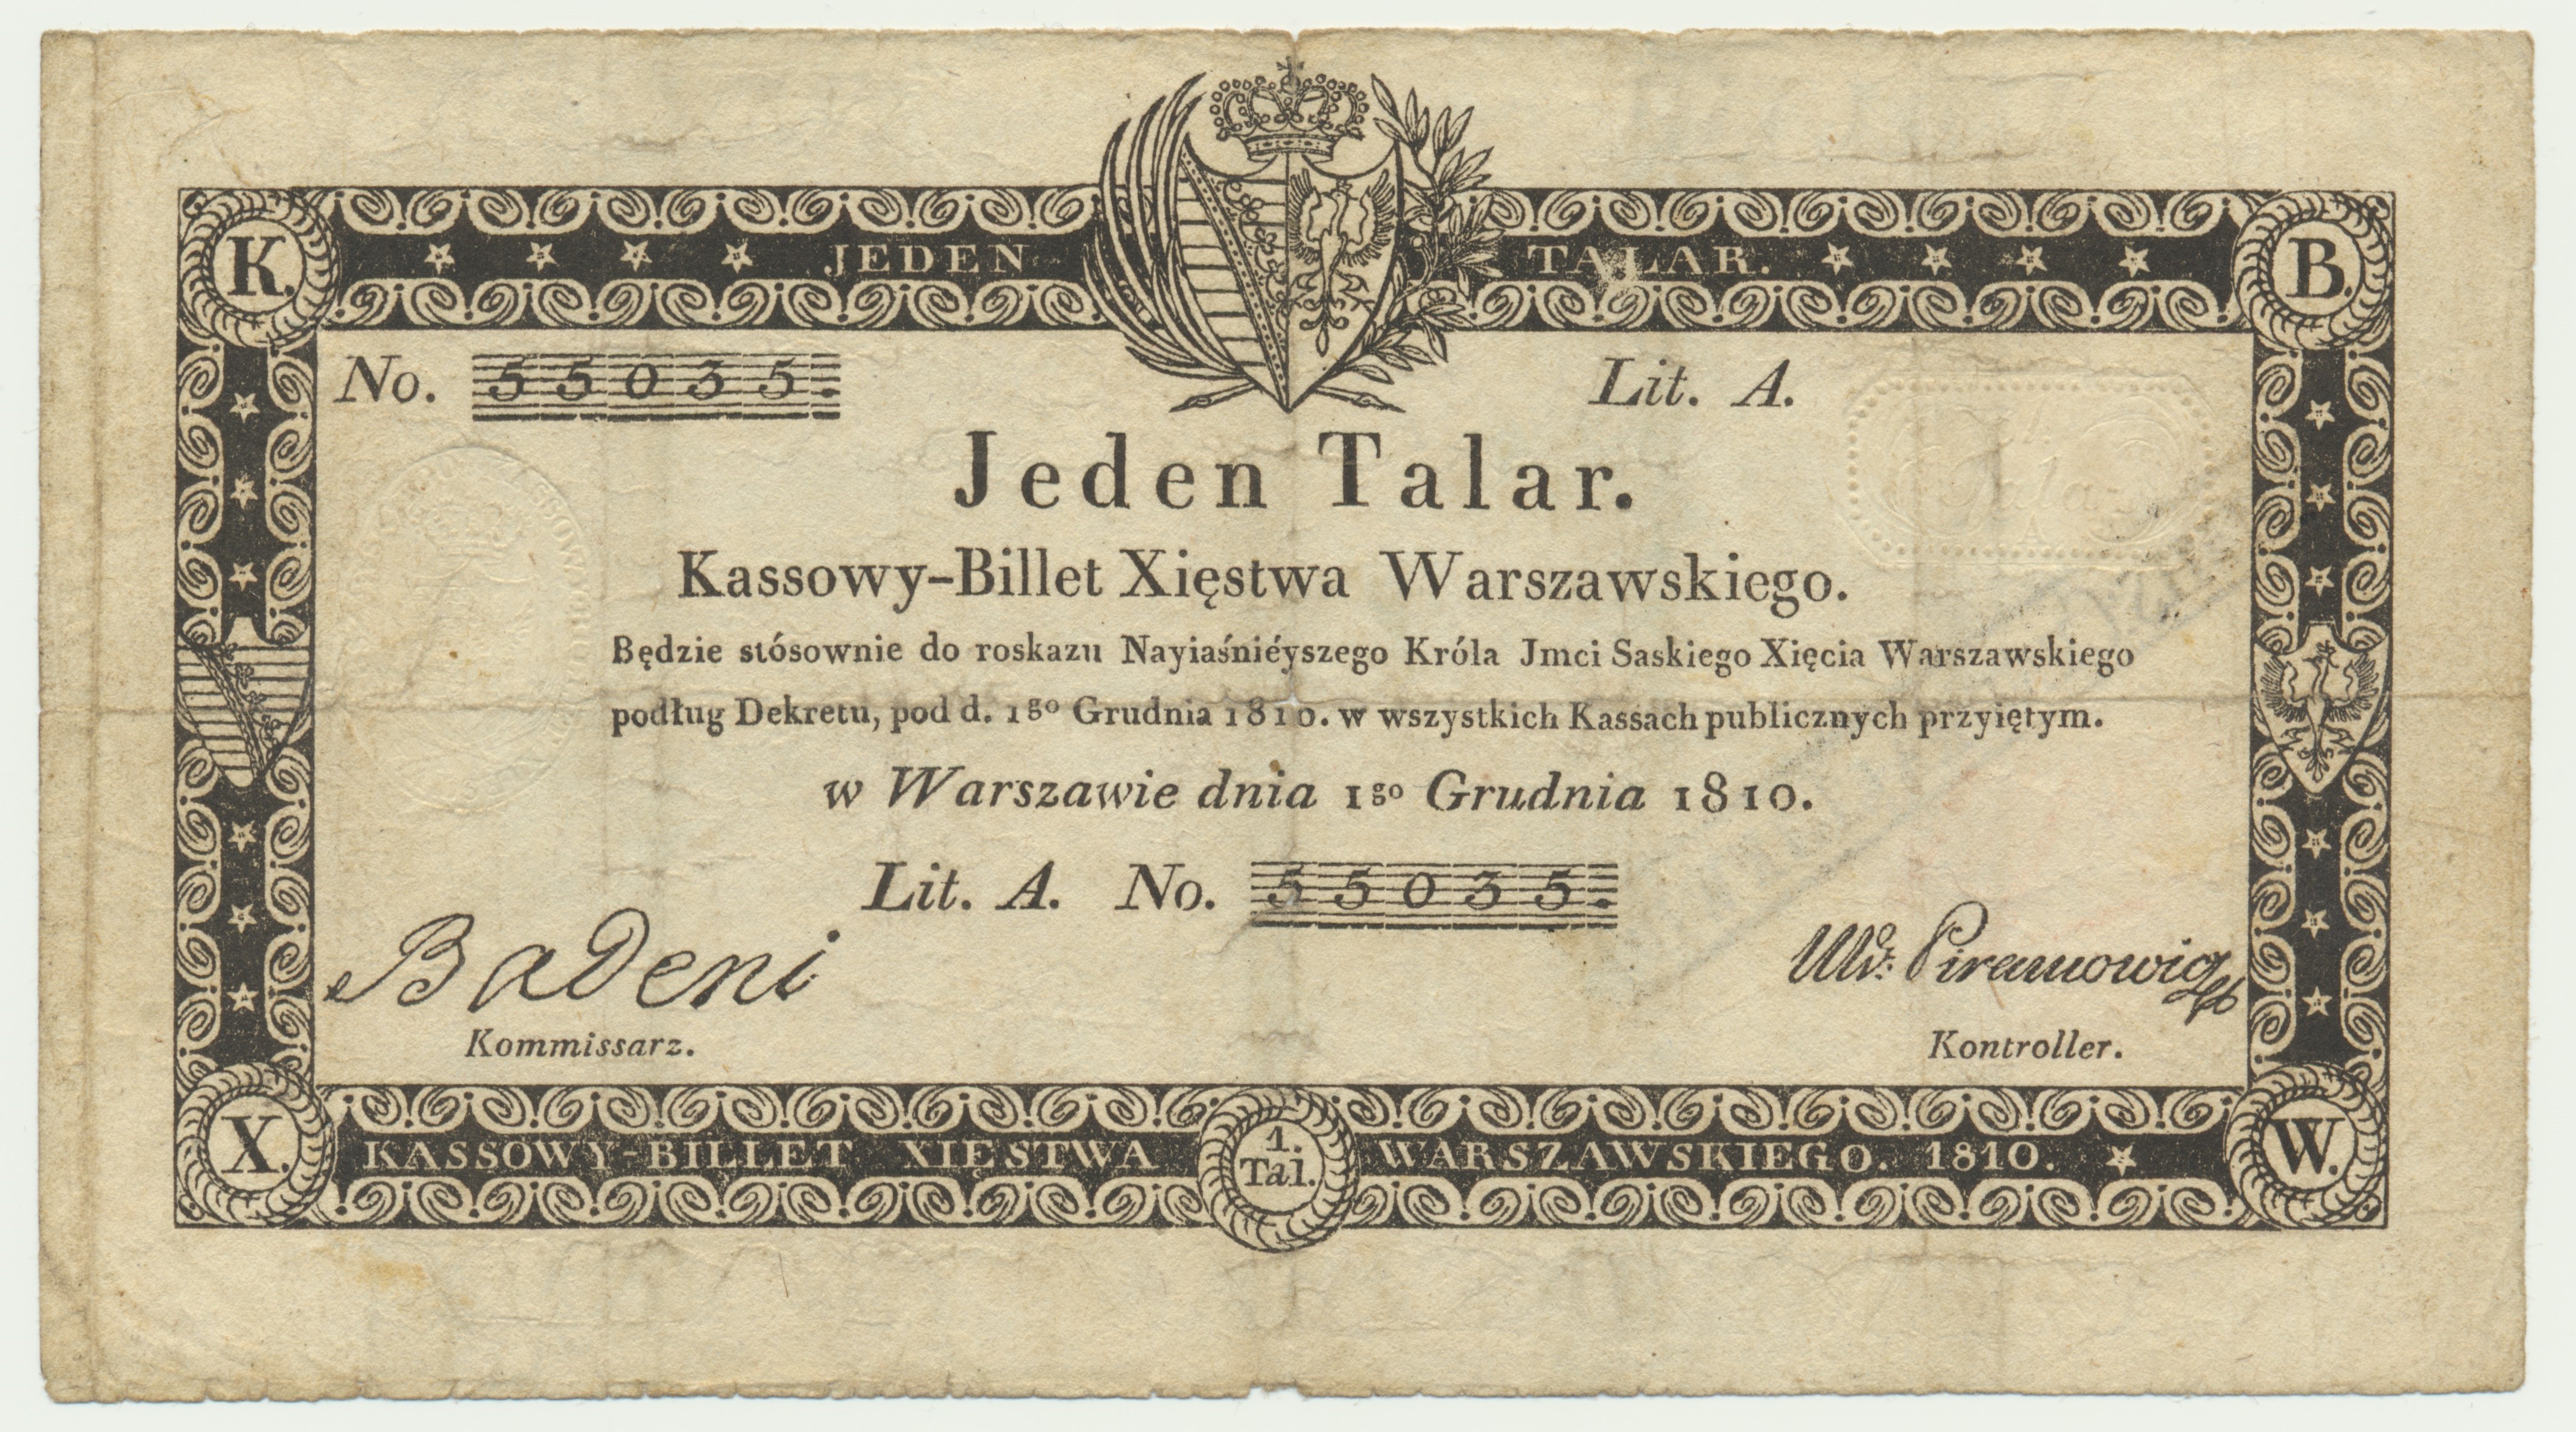 K. JEDEN TALAR. B.
No. 55035. Lit. A.
Jeden Talar.
Kassowy-Billet Xięstwa Warszawskiego.
Będzie stósownie do roskazu Nayiaśniéyszego Króla Jmci Saskiego Xięcia Warszawskiego
podług Dekretu, pod d. 1go Grudnia 1810. w wszystkich Kassach publicznych przyiętym.
w Warszawie dnia 1go Grudnia 1810.
Lit. A. No. 55035.
Badeni
Piramowicz
Kommissarz. Kontroller.
X. KASSOWY-BILLET XIĘSTWA 1. Tal. WARSZAWSKIEGO. 1810. W.